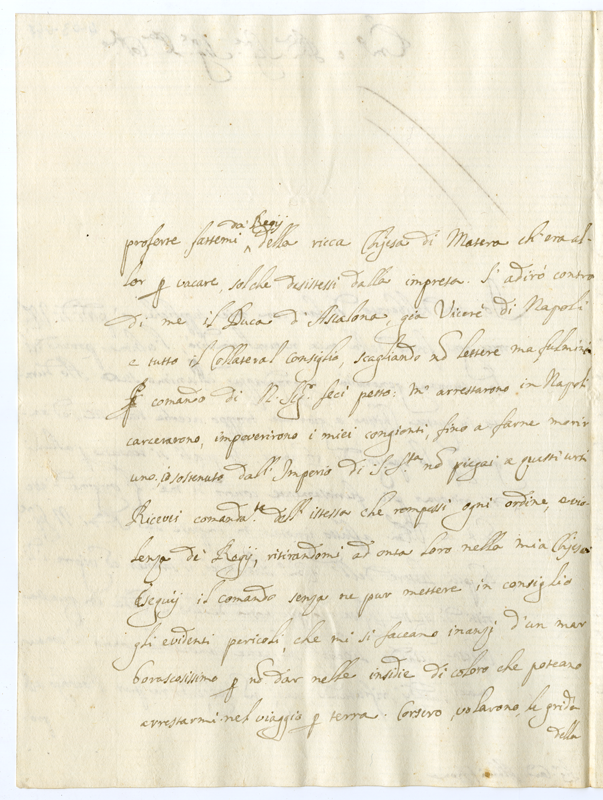 da Regij
proferte fattemi ^ della ricca Chiesa di Matera ch'era al-
lor p vacare, sol che desistessi dalla impresa. S'adirò contro
di me il Duca d'Ascalona, già Viceré di Napoli
e tutto il Collateral Consiglio, scagliando nō lettere ma fulmini
P comando di N. Sigr. feci petto: m'arrestarono in Napoli
carcerarono, impoverirono i miei congionti, fino a farne morir
uno. Io sostenuto dall'Imperio di S. Sta nō piegai a questi urti
Ricevei comanda.te dell'istessa che rompessi ogni ordine, e vio-
lenza de' Regij, ritirandomi ad onta loro nella mia Chiesa
Eseguij il comando senza ne pur mettere in consiglio
gli evidenti pericoli, che mi si faceano inanzi d'un mar
borascosissimo p nō dar nelle insidie di coloro che poteano
arrestarmi nel viaggio p terra. Corsero, volarono, le grida
della